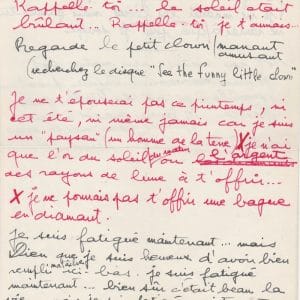 Rappelle-toi... le soleil était
brûlant... Rappelle-toi je t'aimais...
Regarde le petit clown
amusant
(recherchez le disque "See the funny little clown"
Je ne t'épouserai pas ce printemps, ni
cet été, ni même jamais car je suis
un "paysan" (un homme de la terre) X je n'ai
que l'or du soleil ou l'argent
des rayons de lune à t'offrir...
X je ne pourrais pas t'offrir une bague
en diamant.
Je suis fatigué maintenant... mais
bien que je suis heureux d'avoir bien
rempli ici-bas. je suis fatigué
maintenant... bien sûr c'était beau la